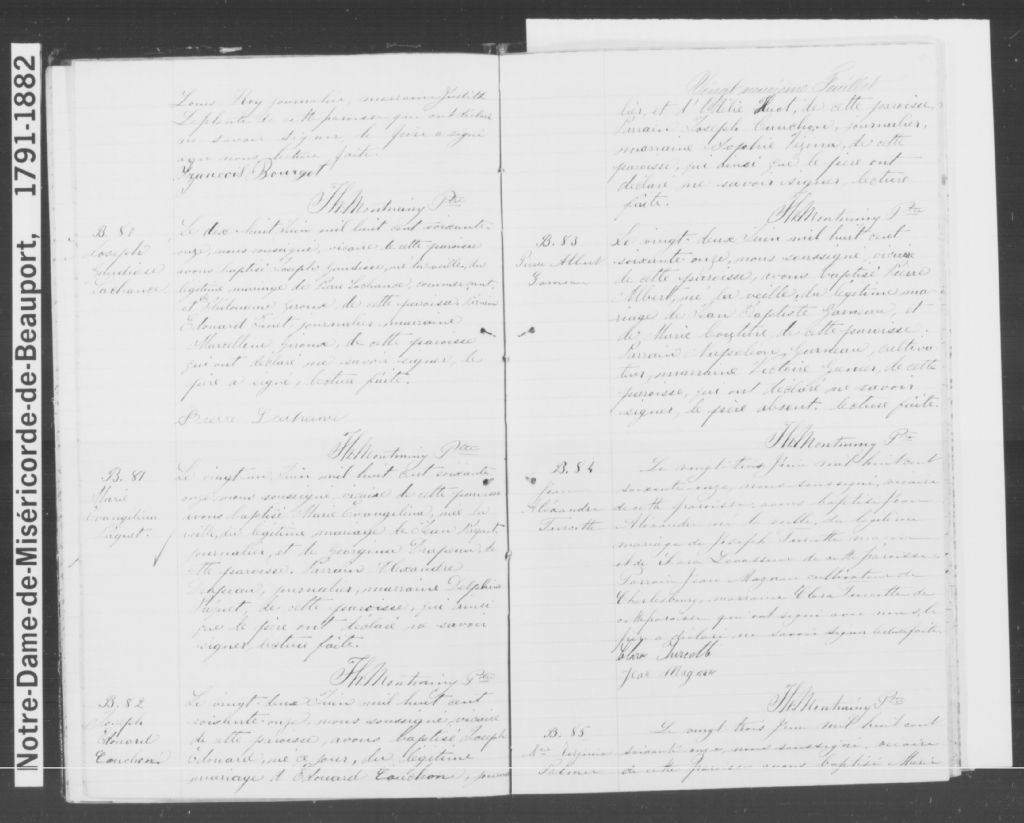 Notre-Dame-de-Miséricorde-de-Beauport, 1791-1882
Louis Roy journalier, marraine Judith
Laplante de cette paroisse qui ont déclaré
ne savoir signer le père a signé
avec nous. lecture faite.
François Bourget
Th Montminy Ptre
B. 80
Joseph
Gaudiose
Lachance
Le dix-huit Juin mil huit cent soixante
onze, nous soussigné, vicaire de cette paroisse
avons baptisé Joseph Gaudiose, né la veille, du
légitime mariage de Pierre Lachance, commerçant,
et Philomène Giroux, de cette paroisse. Parrain
Edouard journalier, marraine
Marcelline Giroux, de cette paroisse
qui ont déclaré ne savoir signer, le
père a signé, lecture faite.
Pierre Lachance
Th Montminy Ptre
B. 81
Marie
Evangelina
Paquet.
Le vingt-un Juin mil huit cent soixante
onze, nous soussigné, vicaire de cette paroisse
avons baptisé Marie Evangelina, née la
veille, du légitime mariage de Jean Paquet,
journalier, et de Georgina Drapeau, de
cette paroisse. Parrain Alexandre
Drapeau, journalier, marraine Delphine
Paquet, de cette paroisse, qui ainsi
que le père ont déclaré ne savoir
signer, lecture faite.
Th Montminy Ptre
B. 82
Joseph
Edouard
Cauchon
Le vingt-deux Juin mil huit cent
soixante-onze, nous soussigné, vicaire
de cette paroisse, avons baptisé Joseph
Edouard, né ce jour, du légitime
mariage d'Edouard Cauchon, journa
Vingt Feuillet
lier, et d' Huot, de cette paroisse,
Parrain Joseph Cauchon, journalier,
marraine Sophie Vézina, de cette
paroisse, qui ainsi que le père ont
déclaré ne savoir signer, lecture
faite.
Th Montminy Ptre
B. 83
Pierre Albert
Garneau
Le vingt-deux Juin mil huit cent
soixante onze, nous soussigné, vicaire
de cette paroisse, avons baptisé Pierre
Albert, né la veille, du légitime ma-
riage de Jean Baptiste Garneau, et
de Marie de cette paroisse.
Parrain Napoléon Garneau, cultiva-
teur, marraine Victoire de cette
paroisse, qui ont déclaré ne savoir
signer, le père absent. lecture faite.
Th Montminy Ptre
B. 84
Jean
Alexandre
Turcotte
Le vingt trois Juin mil huit cent
soixante onze, nous soussigné, vicaire
de cette paroisse, avons baptisé Jean
Alexandre né la veille, du légitime
mariage de Joseph Turcotte maçon
et de Clara Levasseur de cette paroisse
Parrain Jean Magnan cultivateur de
Charlesbourg, marraine Clara Turcotte de
cette paroisse qui ont signé avec nous, le
père a déclaré ne savoir signer lecture faite,
Clara Turcotte
Jean Magnan
Th Montminy Ptre
B. 85
Mie Virginie
Palmer
Le vingt trois Juin mil huit cent
soixante onze, nous soussigné, vicaire
de cette paroisse avons baptisé Marie